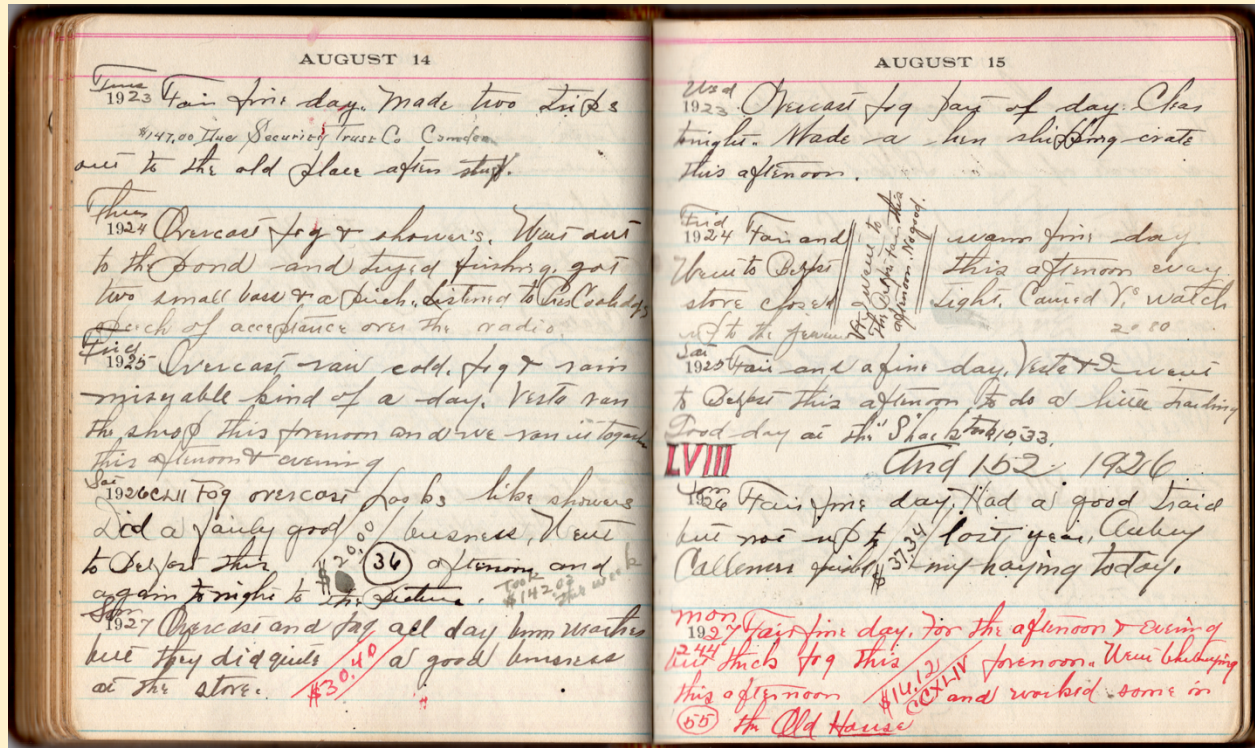 AUGUST 14
Tues
1923 Fair fine day. Made two trips
$147.00 Due Security Trust Co Camden
out to the old place after stuff.
Thurs
1924 Overcast fog & shower's. Went out
to the pond and tryed fishing. got
two small bass & a perch. Listened to Pres Coolidge's
speach of acceptance over the radio
Frid
1925 Overcast raw cold. fog & rain
miserable kind of a day. Vesta ran
the shop this forenoon and we ran it together
this afternoon & evening
Sat
1926 Fog overcast looks like showers
Did a fairly good business. Went
to Belfast this $20.00 36 afternoon and
again tonight to the picture. Took
$142.02 this week
Sun
1927 Overcast and fog all day
but they did quite a good business
at the store. $30.40
AUGUST 15
Wed
1923 Overcast fog part of day. Clear
tonight. Made a hen shipping crate
this afternoon.
Frid
1924 Fair and warm fine day
Went to Belfast this afternoon every
store closed tight. Carried V's watch
up to the
20.80
went to
the this
afternoon. No good.
Sat
1925 Fair and a fine day. Vesta & I went
to Belfast this afternoon to do a little trading
Good day at the "Shack" took 10.33.
LVIII
And 152 1926
Sun
1926 Fair fine day, Had a good traid
but not up to last year,
$37.34 my haying today.
Mon
1927 Fair fine day. For the afternoon & evening
244
but thick fog this forenoon. Went
this afternoon $14.12 CCXLIV and worked some in
55 the Old House